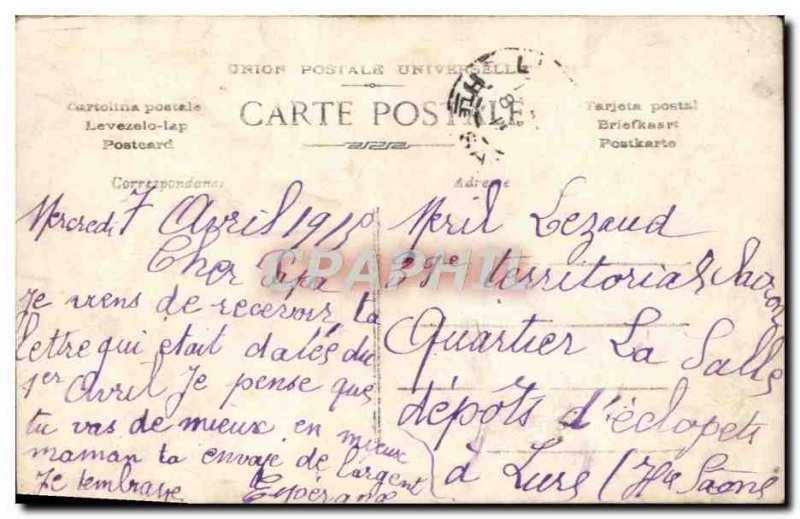 UNION POSTALE UNIVERSELLE
CARTE POSTALE
Cartolina postale
Levezelo-lap
Postcard
Tarjeta postal
Briefkaart
Postkarte
Correspondance
Adresse
Mercredi 7 Avril 1915
Cher Papa
Je viens de recevoir ta
lettre qui était datée du
1er Avril Je pense que
tu vas de mieux en mieux
maman ta envoje de l'argent
Je tembrasse
Espérance
Meril Lezaud
territorial
Quartier La Salle
dépôts d'éclopets
à Lure (Hte Saône
CPAPHIL